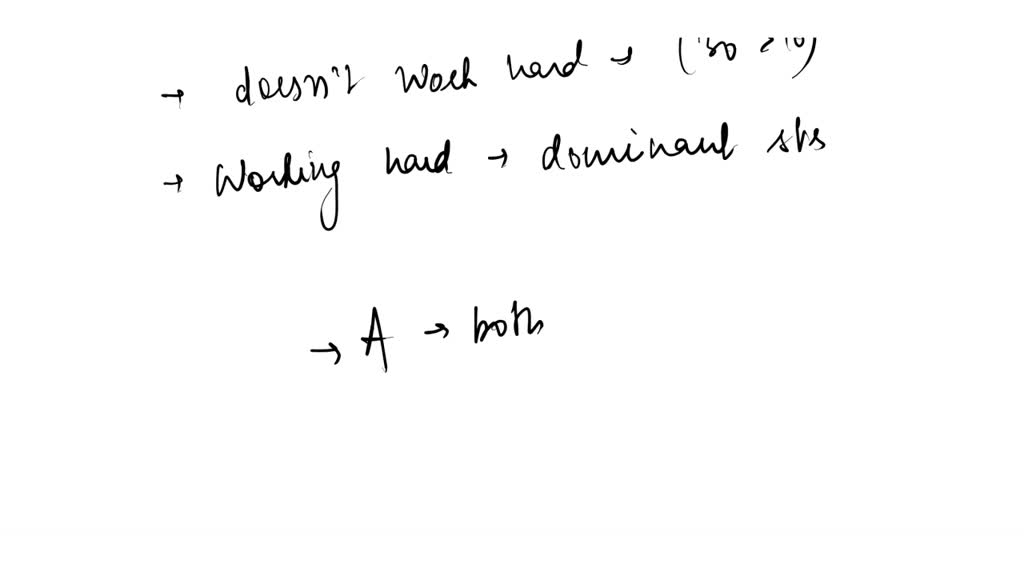 → doesn't work hard → (30 > 10)
→ Working hard → dominant sts
→ A → both